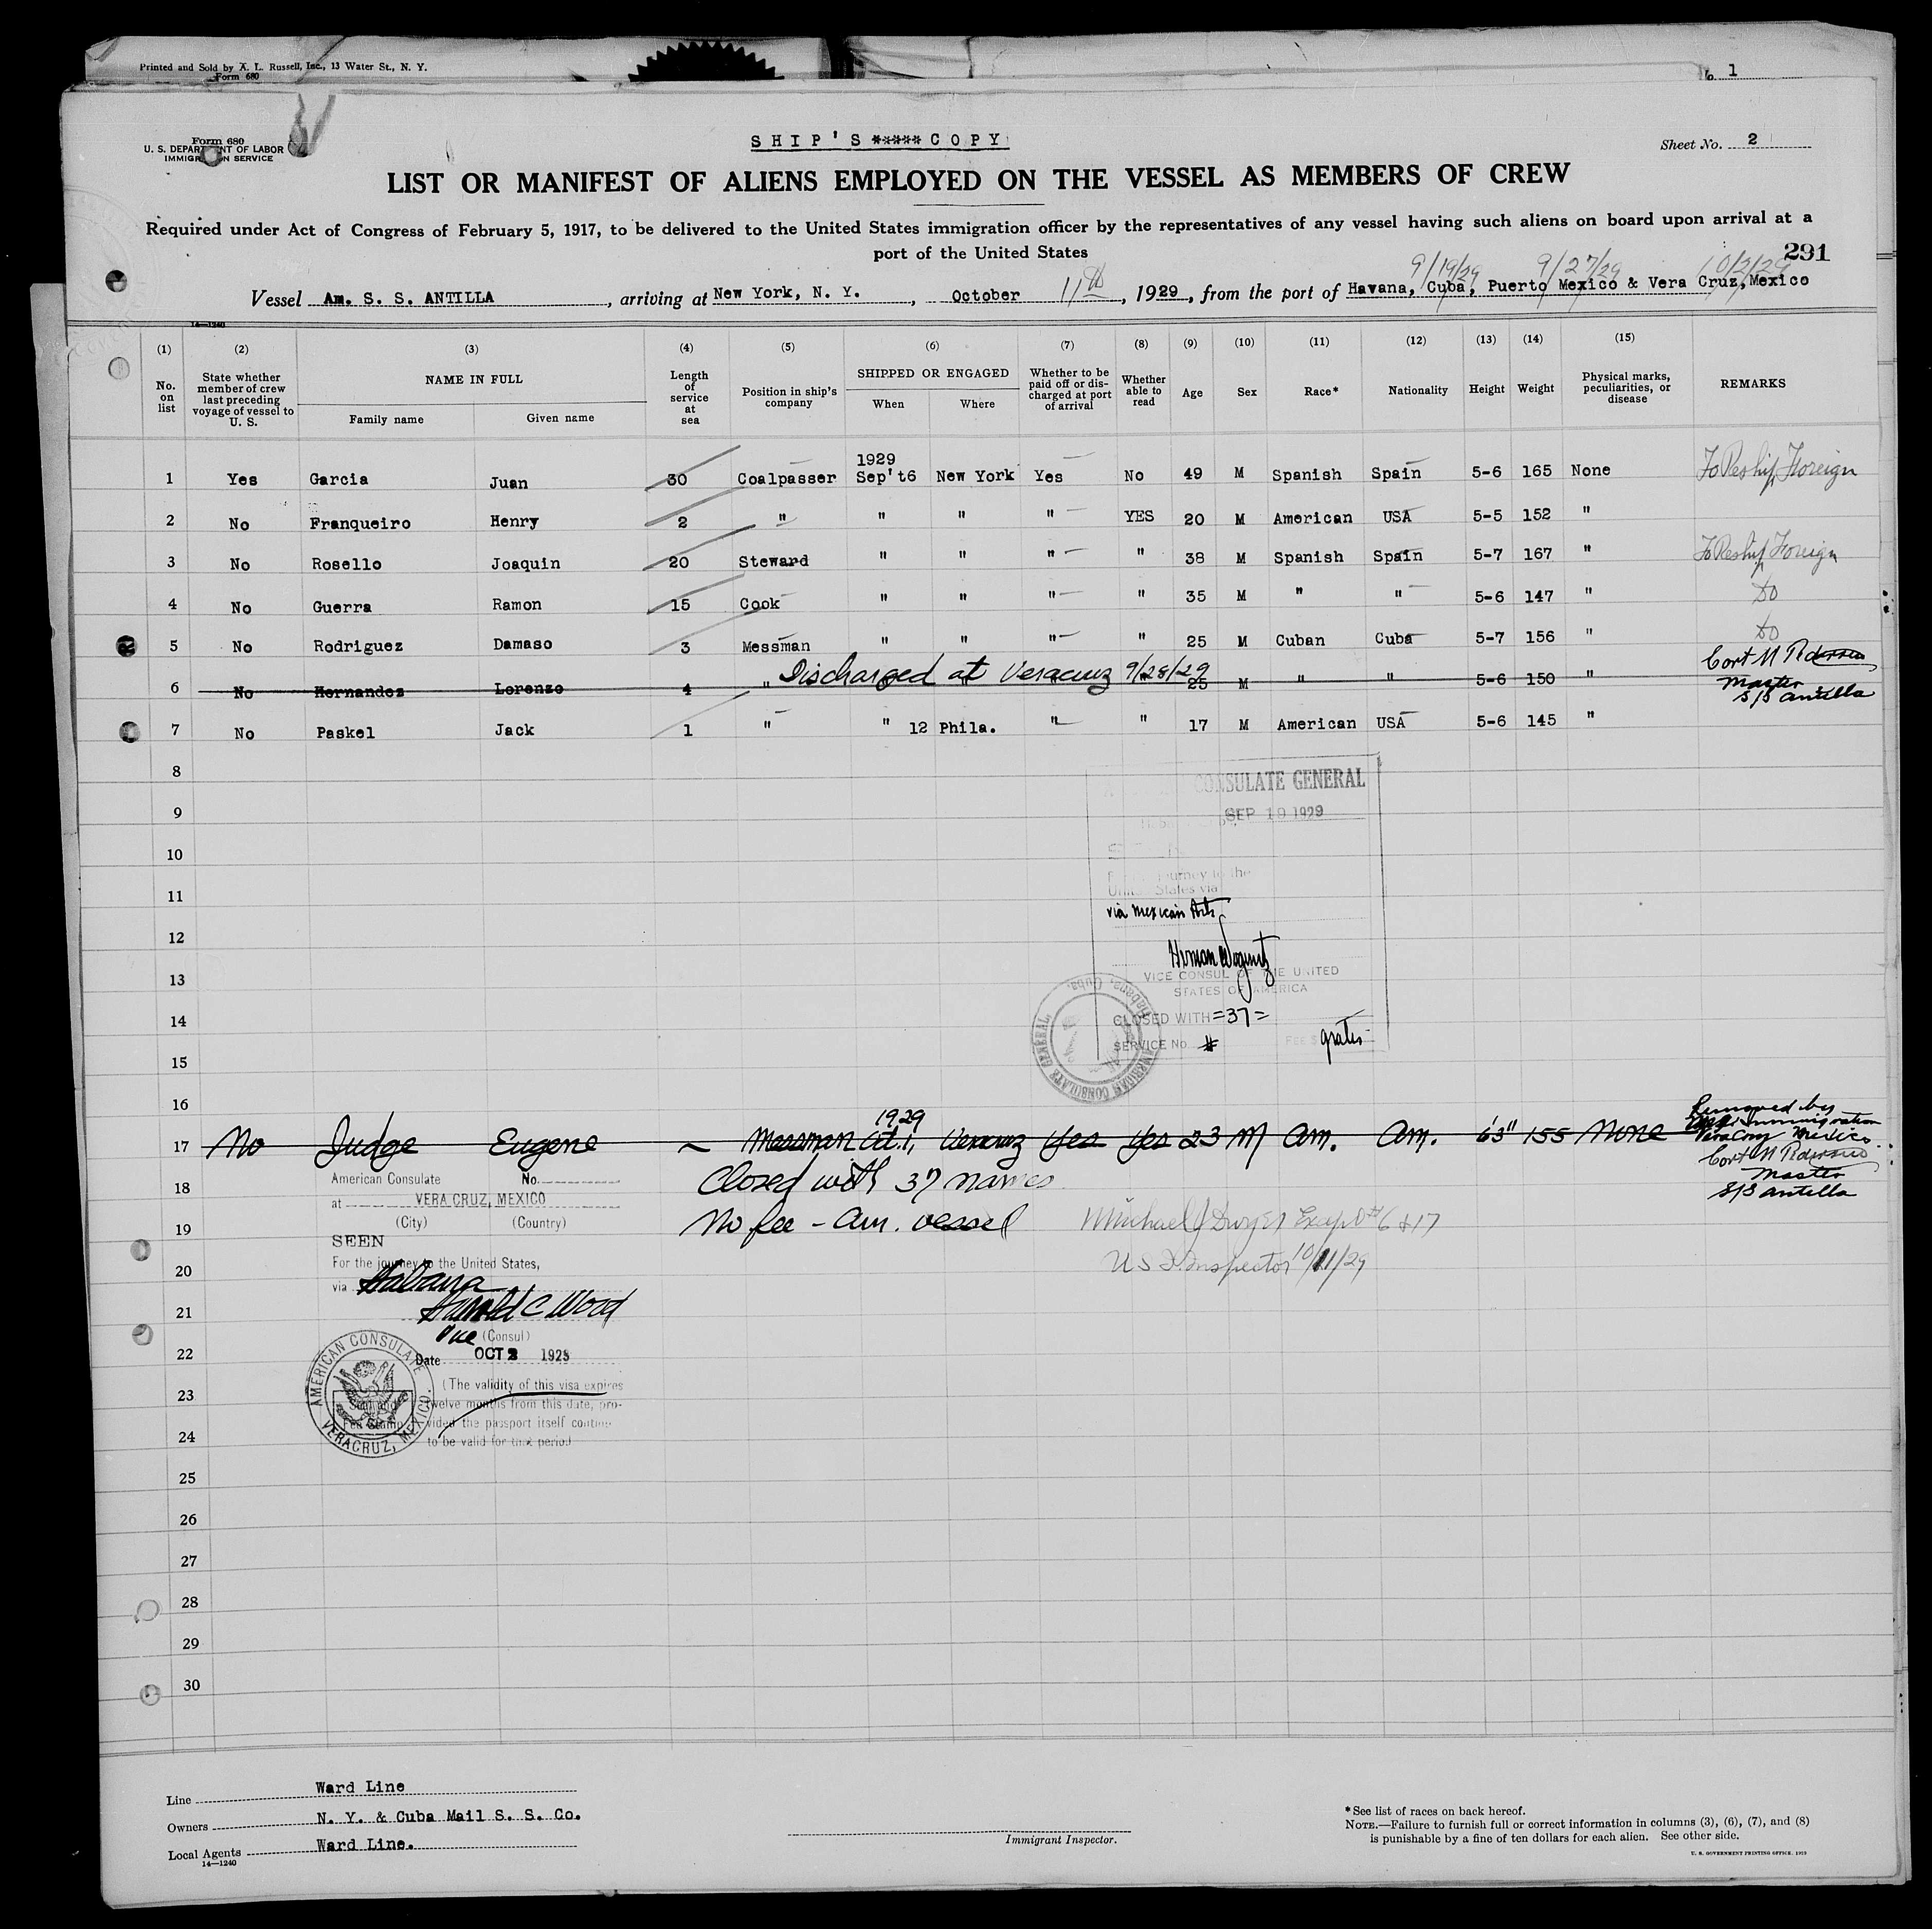 Printed and Sold by A. L. Russell, Inc., 13 Water St., N. Y.
Form 680
1
Form 680
U. S. DEPARTMENT OF LABOR
IMMIGRATION SERVICE
SHIP'S ***** COPY
Sheet No. 2
LIST OR MANIFEST OF ALIENS EMPLOYED ON THE VESSEL AS MEMBERS OF CREW
Required under Act of Congress of February 5, 1917, to be delivered to the United States immigration officer by the representatives of any vessel having such aliens on board upon arrival at a
port of the United States
291
9/19/29 9/27/29 10/2/29
Vessel Am. S. S. ANTILLA, arriving at New York, N. Y., October 11th, 1929, from the port of Havana, Cuba, Puerto Mexico & Vera Cruz, Mexico
14—1240
(1) (2) (3) (4) (5) (6) (7) (8) (9) (10) (11) (12) (13) (14) (15)
No. on list
State whether member of crew last preceding voyage of vessel to U. S.
NAME IN FULL
Family name
Given name
Length of service at sea
Position in ship's company
SHIPPED OR ENGAGED
When
Where
Whether to be paid off or discharged at port of arrival
Whether able to read
Age
Sex
Race*
Nationality
Height
Weight
Physical marks, peculiarities, or disease
REMARKS
1929
1 Yes Garcia Juan 30 Coalpasser Sep't6 New York Yes No 49 M Spanish Spain 5-6 165 None To Reship Foreign
2 No Franqueiro Henry 2 " " " " YES 20 M American USA 5-5 152 "
3 No Rosello Joaquin 20 Steward " " " " 38 M Spanish Spain 5-7 167 " To Reship Foreign
4 No Guerra Ramon 15 Cook " " " " 35 M " " 5-6 147 " do
5 No Rodriguez Damaso 3 Messman " " " " 25 M Cuban Cuba 5-7 156 " do
Discharged at Veracruz 9/28/29
6 No Hernandez Lorenzo 4 " " 25 M " " 5-6 150 "
Master
S/S Antilla
7 No Paskel Jack 1 " " 12 Phila. " " 17 M American USA 5-6 145 "
8
CONSULATE GENERAL
9
SEP 19 1929
10
11
journey to the
United States via
via Mexican Ports
12
13
VICE CONSUL OF THE UNITED
STATES OF AMERICA
14
CLOSED WITH =37=
SERVICE No. #
FEE $ gratis
AMERICAN CONSULATE GENERAL, Habana, Cuba.
15
16
1929
17 No Judge Eugene ~ Messman Oct. 1, Veracruz Yes Yes 23 M Am. Am. 63" 155 None
Removed by
Immigration
Vera Cruz Mexico.
Master
S/S Antilla
American Consulate No.
at VERA CRUZ, MEXICO
(City) (Country)
18 Closed with 37 names
19 No fee - Am. vessel
Michael J Dwyer Except #6 & 17
US I Inspector 10/11/29
SEEN
For the journey to the United States,
20
via Habana
21
Harold C Wood
Vice (Consul)
22
Date OCT 2 1929
AMERICAN CONSULATE
VERACRUZ, MEXICO.
Seal and
Fee Stamp
(The validity of this visa expires
23
twelve months from this date, pro-
vided the passport itself continu-
24
to be valid for that period
25
26
27
28
29
30
Line Ward Line
Owners N. Y. & Cuba Mail S. S. Co.
Local Agents Ward Line.
14—1240
Immigrant Inspector.
*See list of races on back hereof.
NOTE.—Failure to furnish full or correct information in columns (3), (6), (7), and (8)
is punishable by a fine of ten dollars for each alien. See other side.
U. S. GOVERNMENT PRINTING OFFICE. 1923